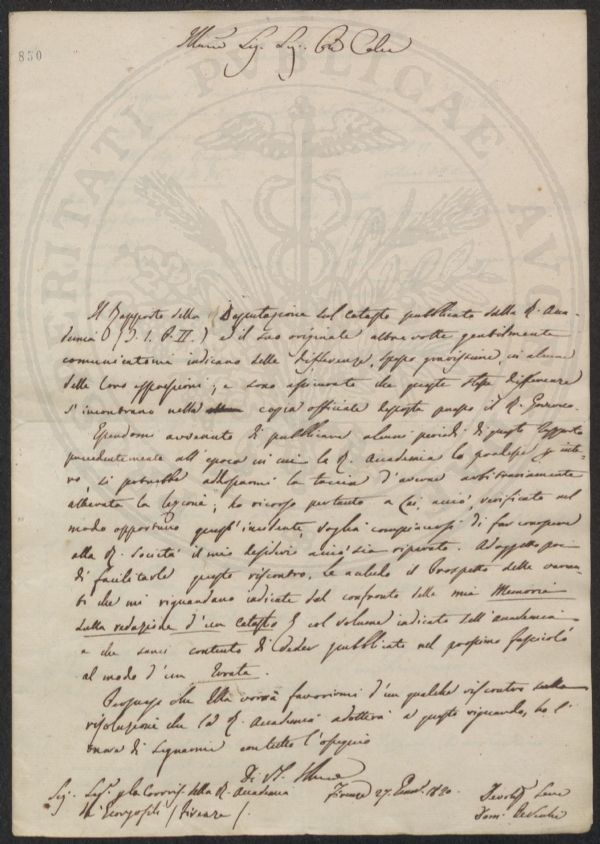 850
Sig. Sig.
Il Rapporto della Deputazione sul Catasto pubblicato dalla R. Acca-
demia (T. I. P. II.) ed il suo originale altre volte gentilmente
comunicatomi indicano delle differenze, spesso gravissime, in alcune
delle loro espressioni; e sono assicurato che queste stesse differenze
s'incontrano nella copia officiale deposta presso il R. Governo.
Essendomi avvenuto di pubblicare alcuni periodi di questo Rapporto
precedentemente all'epoca in cui la R. Accademia lo per inte-
ro, si potrebbe addossarmi la taccia d'averne arbitrariamente
alterata la lezione; ho ricorso pertanto a Lei, acciò, verificato nel
modo opportuno quest'incidente, voglia compiacersi di far conoscere
alla R. Società il mio desiderio acciò sia riparato. Ad oggetto poi
di facilitarle questo riscontro, le accludo il Prospetto delle varian-
ti che mi riguardano indicate dal confronto della mia Memoria
sulla redazione d'un Catasto col volume indicato dell'Accademia
e che sarei contento di veder pubblicate nel prossimo fascicolo
al modo d'un Errata.
Persuaso che Ella vorrà favorirmi d'un qualche riscontro sulla
risoluzione che la R. Accademia adotterà a questo riguardo, ho l'
onore di segnarmi con tutto l'ossequio
Di V. S.
Sig. Seg. della R. Accademia
de' Georgofili / Firenze /.
Firenze 27. 1820.
VERITATI PUBLICAE